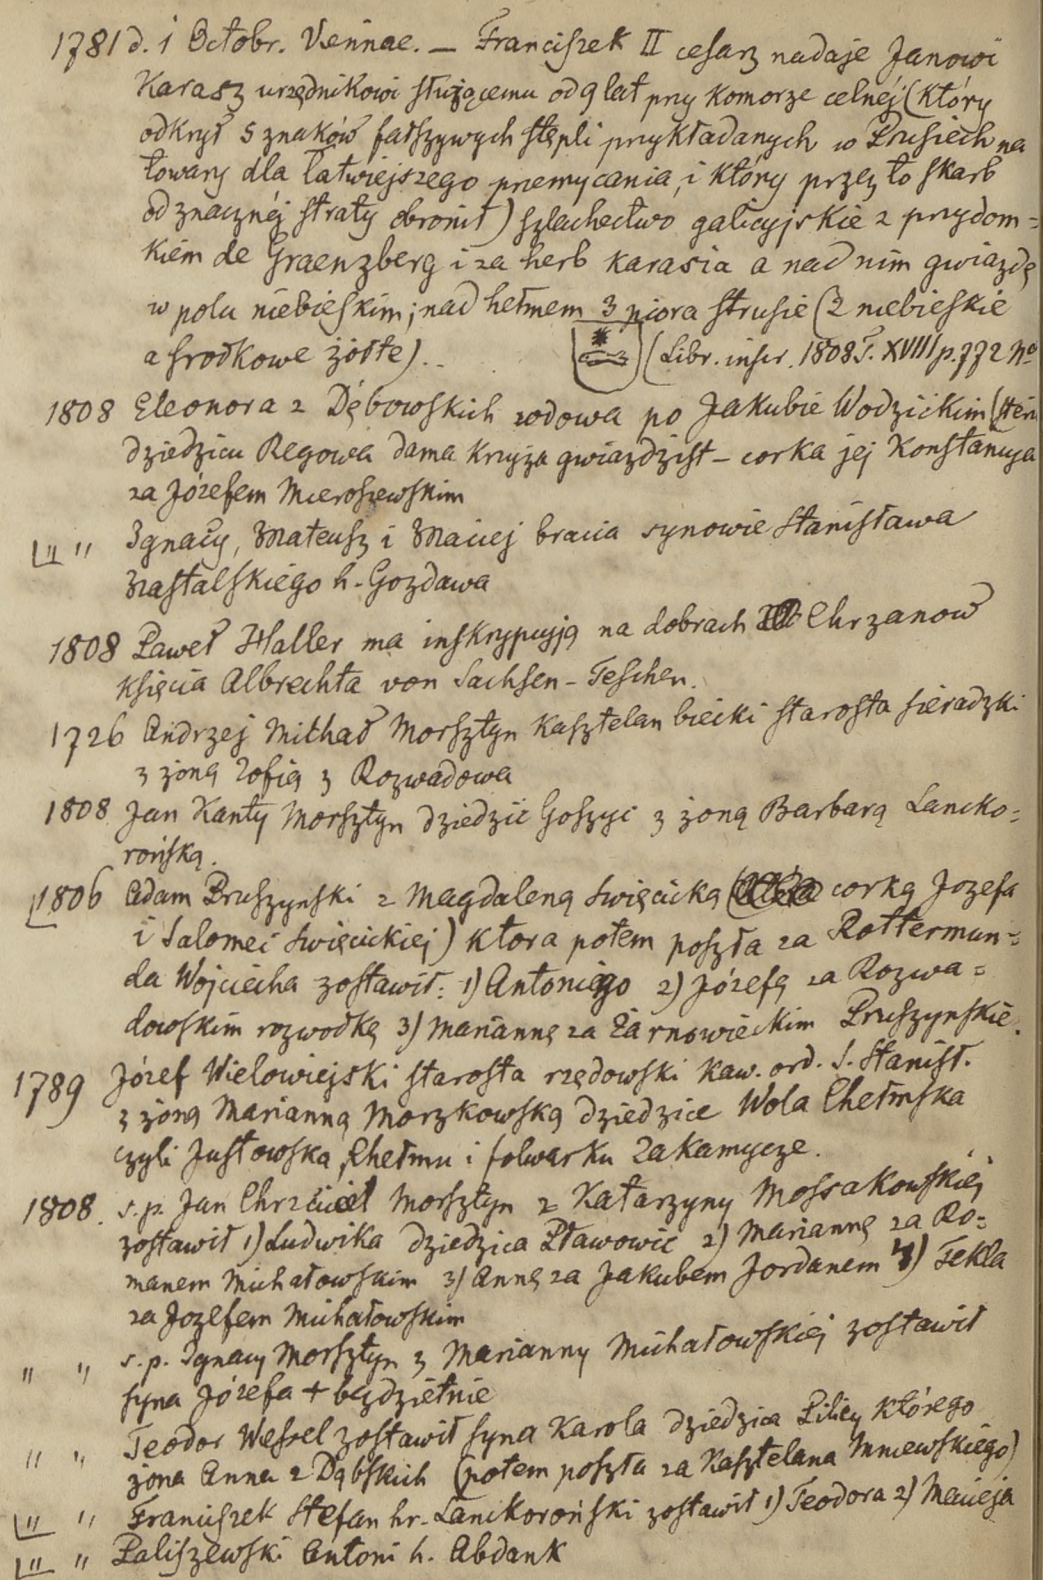 1781 d. 1 Octobr. Viennae. – Franciszek II cesarz nadaje Janowi
Karasz urzędnikowi służącemu od 9 lat przy komorze celnéj (który
odkrył 5 znaków fałszywych stępli przykładanych w Prusiech na
towary dla łatwiejszego przemycania, i który przez to skarb
od znacznéj straty obronił) szlachectwo galicyjskie z przydom=
kiem de Graenzberg i za herb karasia a nad nim gwiazdę
w polu niebieskim; nad hełmem 3 piora strusie (2 niebieskie
a srodkowe żółte).. (Libr. inscr. 1808 T. XVIII p. 772 No
1808 Eleonora z Dębowskich wdowa po Jakubie Wodzickim
dziedzicu Regowa dama krzyża gwiazdzist – corka jej Konstancya
za Józefem Mieroszewskim
" " Ignacy, Mateusz i Maciej bracia synowie Stanisława
Nastalskiego h. Gozdawa
1808 Paweł Haller ma inskrypcyją na dobrach Chrzanow
księcia Albrechta von Sachsen – Teschen.
1726 Andrzej Michał Morsztyn kasztelan biecki starosta sieradzki
z żoną Zofią z Rozwadowa
1808 Jan Kanty Morsztyn dziedzic Goszyc z żoną Barbarą Lancko=
rońską.
1806 Adam Pruszynski z Magdaleną Swięcicką (corką Jozefa
i Salomei Swięcickiej) ktora potem poszła za Rottermun=
da Wojciecha zostawił: 1) Antoniego 2) Józefę za Rozwa=
dowskim rozwodkę 3) Mariannę za Żarnowieckim Pruszynskie.
1789 Józef Wielowiejski starosta rzędowski kaw. ord. S. Stanisł.
z żoną Marianną Morzkowską dziedzice Wola Chełmska
czyli Justowska, Chełmu i folwarku Zakamycze.
1808. s.p. Jan Chrzciciel Morsztyn z Katarzyny Mossakowskiej
zostawił 1) Ludwika dziedzica Pławowic 2) Mariannę za Ro=
manem Michałowskim 3) Annę za Jakubem Jordanem 4) Tekla
za Jozefem Michałowskim
" " s.p. Ignacy Morsztyn z Marianny Michałowskiej zostawił
syna Józefa + bezdzietnie
" " Teodor Wessel zostawił syna Karola dziedzica Pilicy którego
żona Anna z Dąbskich (potem poszła za kasztelana Mniewskiego)
" " Franciszek Stefan hr. Lanckoroński zostawił 1) Teodora 2) Macieja
" " Paliszewski Antoni h. Abdank